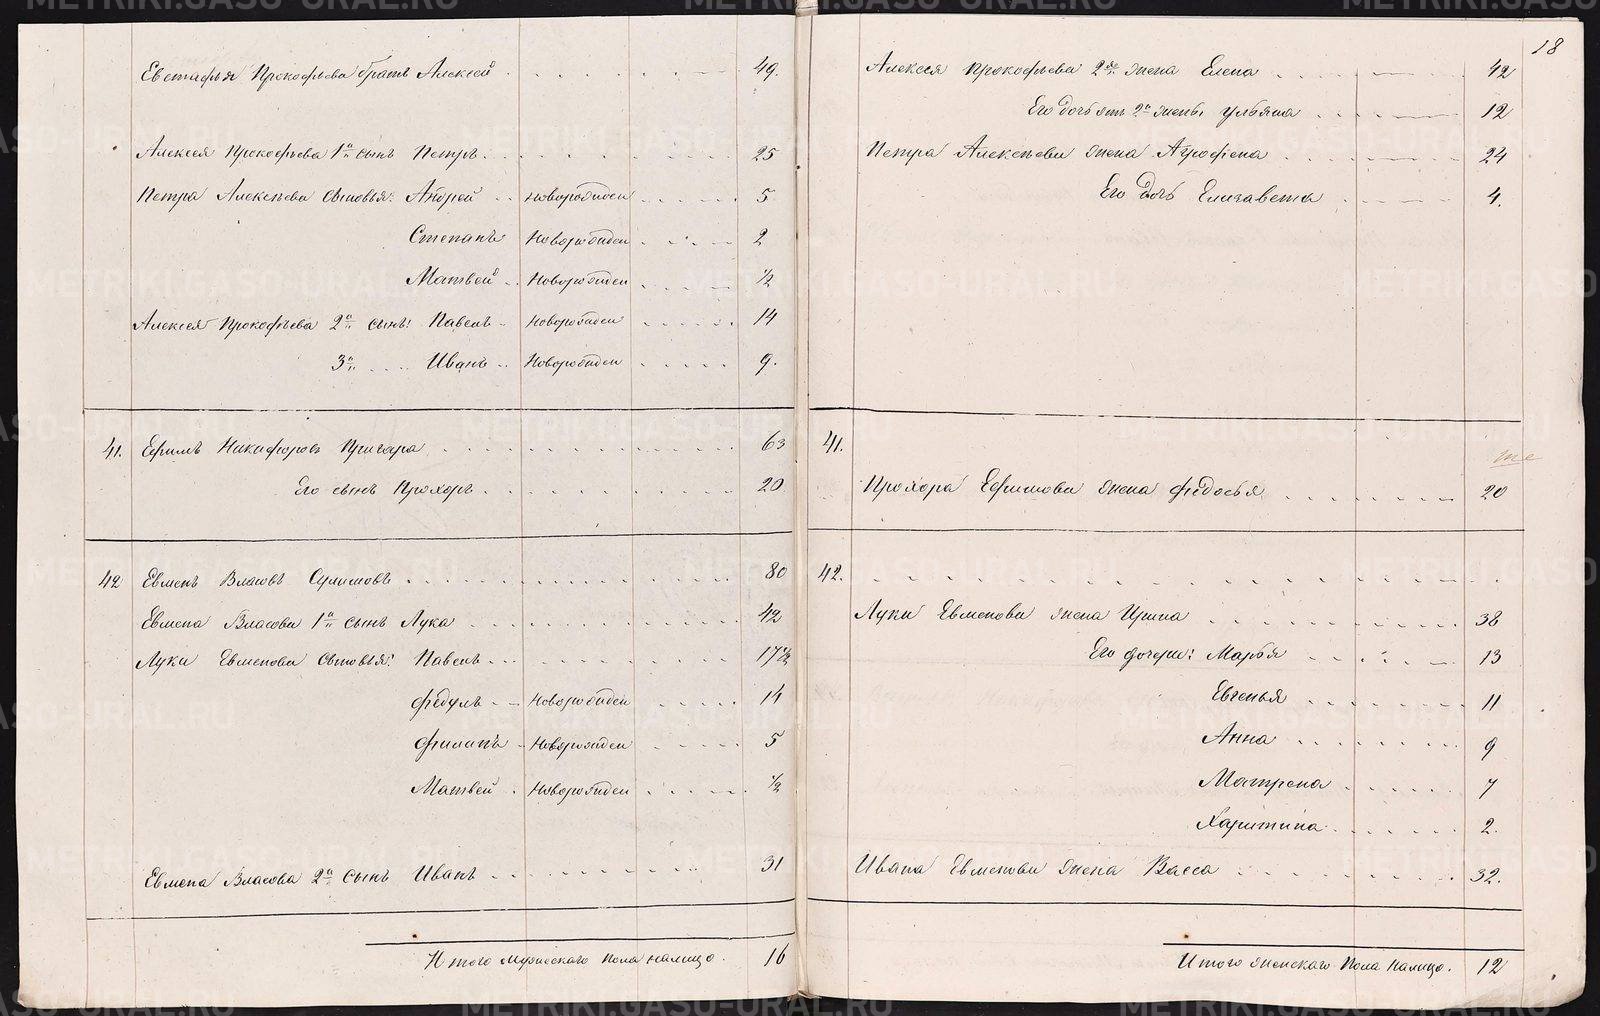 Евстафья Прокофьева братъ Алексѣй 49.
Алексея Прокофьева 1й сынъ Петръ 25
Петра Алексѣева сыновья: Андрей новорожден 5
Степанъ Новорожден 2
Матвей Новорожден ½
Алексея Прокофьева 2й сынъ: Павелъ Новорожден 14
3й Иванъ Новорожден 9.
41. Ефимъ Никифоровъ 63
Его сынъ Прохоръ 20
42 Евменъ Власовъ Сулимовъ 80
Евмена Власова 1й сынъ Лука 42
Луки Евменова сыновья: Павелъ 17½
Федулъ Новорожден 14
Филипъ Новорожден 5
Матвей Новорожден ½
Евмена Власова 2й сынъ Иванъ 31
Итого мужескаго пола налицо. 16
18
Алексея Прокофьева 2я жена Елена 42
Его дочь отъ 2й жены Ульяна 12
Петра Алексѣева жена Агрофена 24
Его дочь Елизавета 4.
41.
Прохора Ефимова жена Федосья 20
42.
Луки Евменова жена Ирина 38
Его дочери: Марья 13
Евгенья 11
Анна 9
Матрена 7
Харитина 2.
Ивана Евменова жена Васса 32.
Итого женскаго пола налицо. 12
METRIKI.GASO-URAL.RU